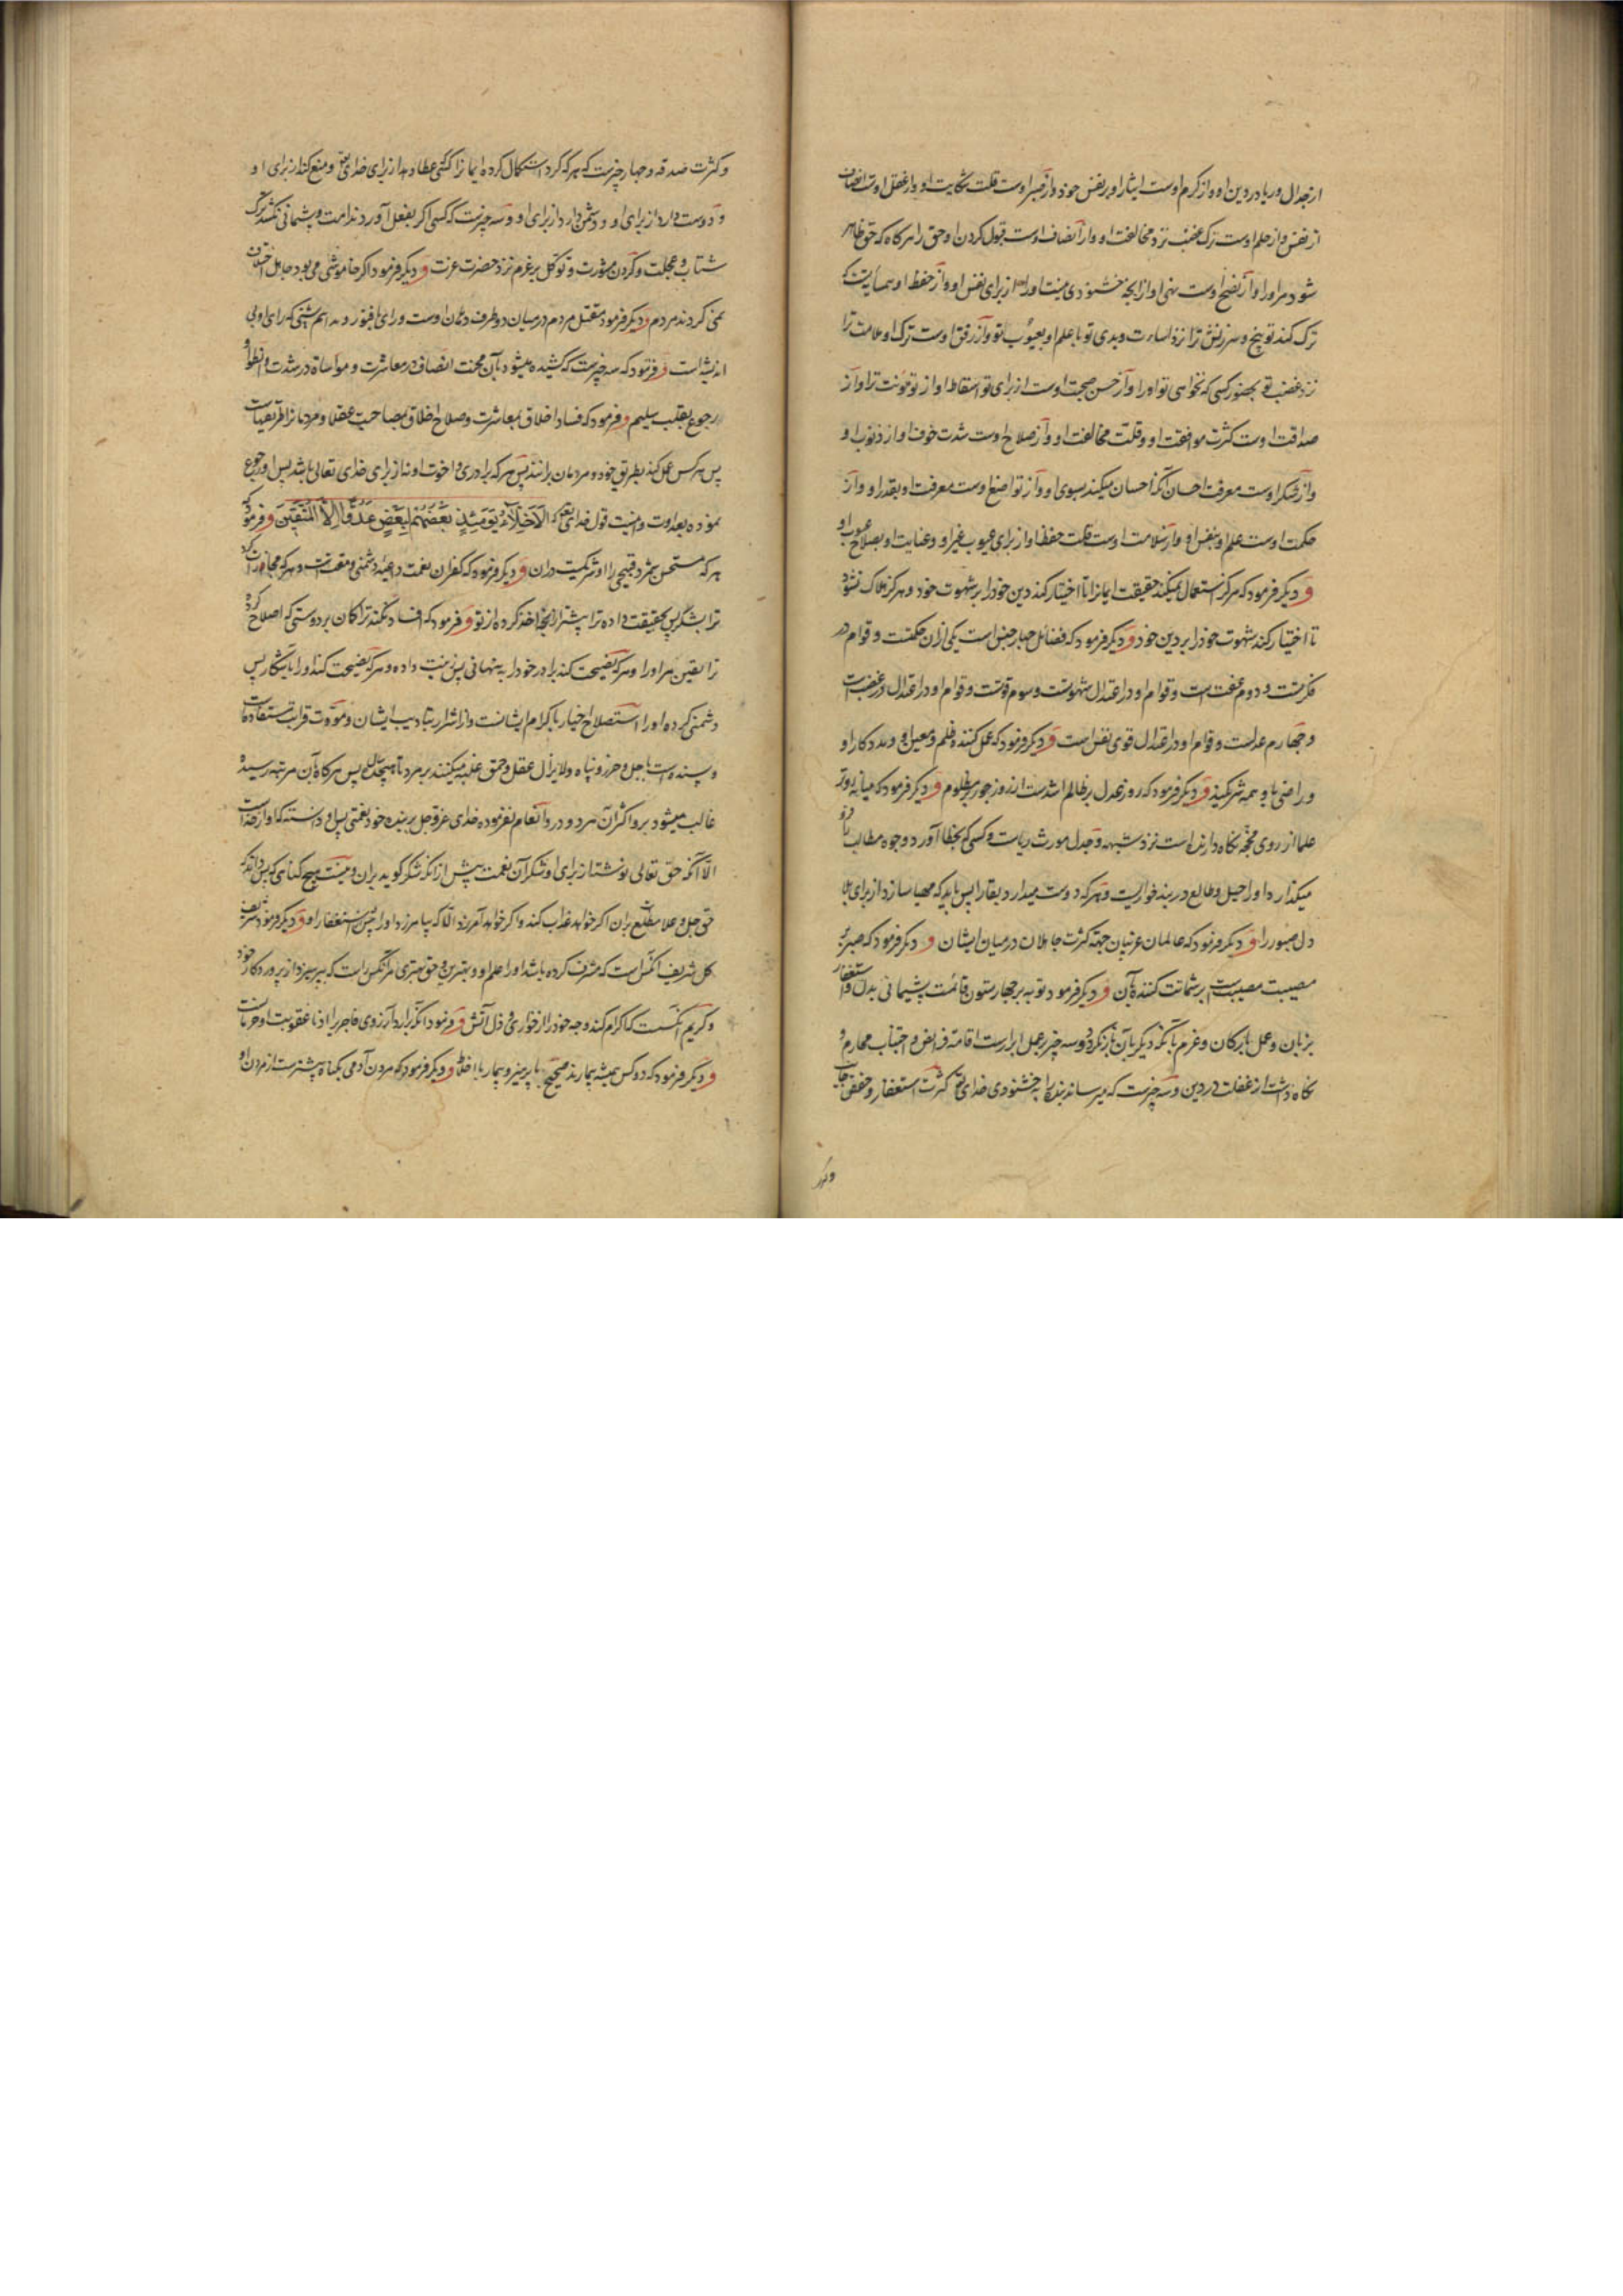 از جدال و ریا در دین او و از کرم اوست ایثار او بر نفس خود و از صبر اوست قلت شکایت او و از عقل اوست انصاف
از نفس و از حلم اوست ترک غضب نزد مخالفت او و از انصاف اوست قبول کردن او حق را هرگاه که حق ظاهر
شود مر او را و از نصح اوست نهی او از آنچه خشنودی نیست او را از برای نفس او و از حفظ او همسایه تست که
ترک کند توبیخ و سرزنش ترا نزد اساءت و بدی تو با علم او بعیوب تو و از رفق اوست ترک او ملامت ترا
نزد غضب تو بحضور کسی که نخواهی تو او را و از حسن صحبت اوست از برای تو اسقاط او از تو مؤنت ترا و از
صداقت اوست کثرت موافقت او و قلت مخالفت او و از صلاح اوست شدت خوف او از ذنوب او
و از شکر اوست معرفت احسان آنکه احسان میکند بسوی او و از تواضع اوست معرفت او بقدر او و از
حکمت اوست علم او بنفس او و از سلامت اوست قلت حفظ او از برای عیوب غیر او و عنایت او بصلاح عیوب او
و دیگر فرمود که هرگز استعمال نمیکند حقیقت ایمانرا تا اختیار کند دین خود را بر شهوت خود و هرگز هلاک نشود
تا اختیار کند شهوت خود را بر دین خود و دیگر فرمود که فضائل چهار جنس است یکی ازان حکمتست و قوام او در
فکرتست و دوم عفت است و قوام او در اعتدال شهوتست و سوم قوتست و قوام او در اعتدال در غضب است
و چهارم عدلست و قوام او در اعتدال قوی نفس است و دیگر فرمود که عمل کننده ظلم و معین او و مددکار او
و راضی باو همه شریکند و دیگر فرمود که روز عدل بر ظالم اشدست از روز جور بر مظلوم و دیگر فرمود که میانه روتر
علما از روی محجه نگاه دارنده است نزد شبهه و جدل مورث ریاست و کسی که بخطا آورد وجوه مطالب را فرو
میگذارد او را حیل و طالع در بند خواریست و هر که دوست میدارد بقا را پس باید که مهیا سازد از برای بلا
دل صبور را و دیگر فرمود که عالمان غریبان جهة کثرت جاهلان در میان ایشان و دیگر فرمود که صبر بر
مصیبت مصیبت است بر شماتت کننده بآن و دیگر فرمود توبه بر چهار ستون قائمست پشیمانی بدل و استغفار
بزبان و عمل بارکان و عزم بآنکه دیگر بآن باز نگردد و سه چیز از عمل ابرارست اقامة فرایض و اجتناب محارم و
نگاه داشت از غفلت در دین و سه چیزست که میرساند بنده را به خشنودی خدای تعالی کثرت استغفار و خفض جانب
و کثرت صدقه و چهار چیزست که هر که کرد استکمال کرده ایمانرا کسی عطا دهد از برای خدای تعالی و منع کند از برای او
و دوست دارد از برای او و دشمن دارد از برای او و سه چیزست که کسی اگر بفعل آورد ندامت و پشیمانی نکشد ترک
شتاب و عجلت و کردن مشورت و توکل بر عزم نزد حضرت عزت و دیگر فرمود اگر خاموشی می بود جاهل اختلاف
نمی کردند مردم و دیگر فرمود مقتل مردم در میان دو طرف دهان اوست و رای با فتور و بد اسم شیئی که رای او بی
اندیشه است و فرمود که سه چیزست که کشیده میشود بآن محبت انصاف در معاشرت و مواساة در شدت و انطوا و
رجوع بقلب سلیم و فرمود که فساد اخلاق بمعاشرت و صلاح اخلاق بمصاحبت عقلا و مردمانرا طریقهاست
پس هر کس عمل کند بطریق خود و مردمان برادرانند پس هر که برادری و اخوت او نه از برای خدای تعالی باشد پس او رجوع
نموده بعداوت و اینست قول خدای تعالی که الاخلاء یومئذ بعضهم لبعض عدو الا المتقین و فرمود که
هر که مستحسن شمرد قبیحی را او شریکیست دران و دیگر فرمود که کفران نعمت داعیه دشمنی و مقتست و هر که مجازات کرد
ترا بشکر پس بحقیقت داده ترا بیشتر از آنچه اخذ کرده از تو و فرمود که افساد نکند ترا گمان بر دوستی که اصلاح کرده
ترا یقین مر او را و هر که نصیحت کند برادر خود را به پنهانی پس زینت داده و هر که نصیحت کند او را بآشکارا پس
دشمنی کرده او را استصلاح اخیار باکرام ایشانست و از اشرار بتادیب ایشان و مودت قرابت مستفادست
و پسنده است باجل و حرز و پناه و لا یزال عقل و حمق غلبه میکنند بر مرد تا هیجده سال پس هرگاه بآن مرتبه رسیده
غالب میشود برو اکثر آن مرد و درو انعام نفرموده خدای عز و جل بر بنده خود نعمتی پس او دانسته که او از خداست
الا آنکه حق تعالی نوشته از برای او شکر آن نعمت پیش از آنکه شکر گوید بران و نیست هیچ گناهی که پس داند که
حق جل و علا مطلع بران اگر خواهد عذاب کند و اگر خواهد آمرزد الا که بیامرزد او را پیش استغفار او و دیگر فرمود شریف
کل شریف آنکس است که مشرف کرده باشد او را علم او و بهتری و حق مهتری مر آنکس راست که بپرهیزد از پروردگار خود
و کریم آنکسست که اکرام کند وجه خود را از خواری و ذل آتش و فرمود آنکه برارد آرزوی فاجر را ادنا عقوبت او حرمانست
و دیگر فرمود که دو کس همیشه بیمارند صحیح با پرهیز و بیمار با اخلاط و دیگر فرمود که مردن آدمی بگناه بیشترست از مردن او